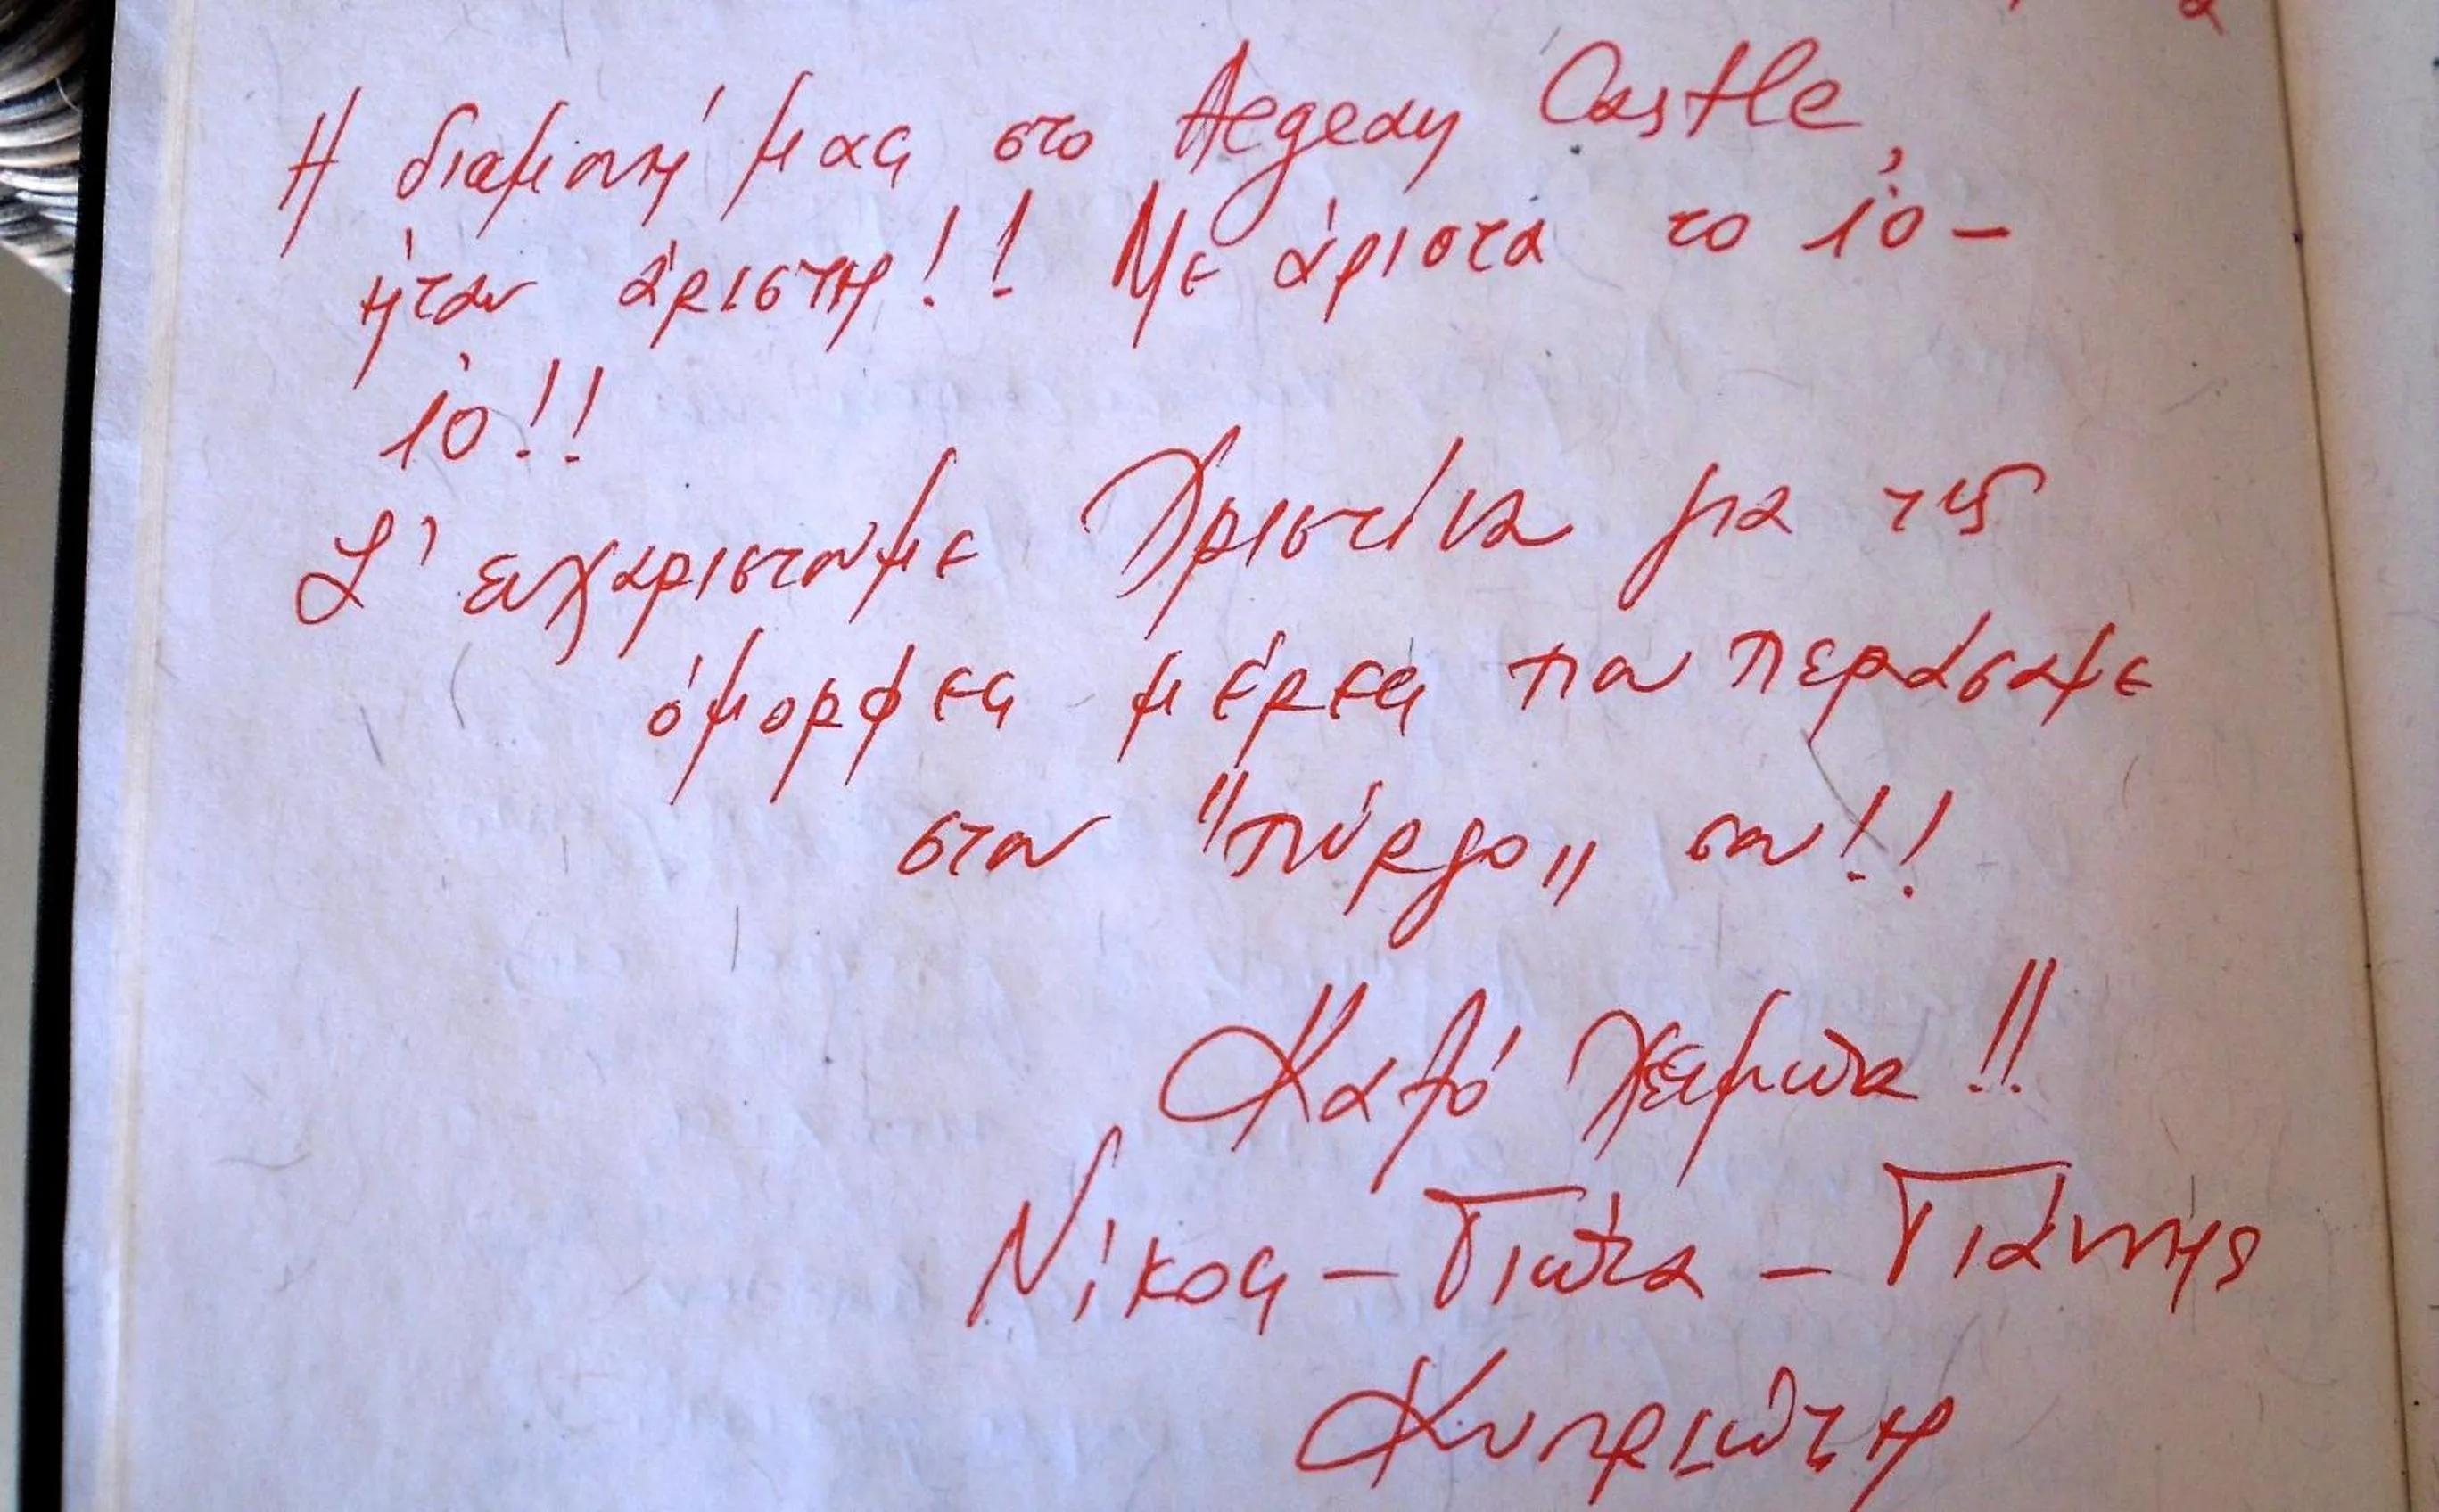 Η διαμονή μας στο Aegean Castle,
ήταν άριστη!! Με άριστα το 10-
10!!
Σ' ευχαριστουμε Χριστίνα για τις
όμορφες μέρες που περάσαμε
στον "πύργο" σου!!
Καλό χειμώνα!!
Νίκος - Γιώτα - Γιάννης
Κυπριώτη